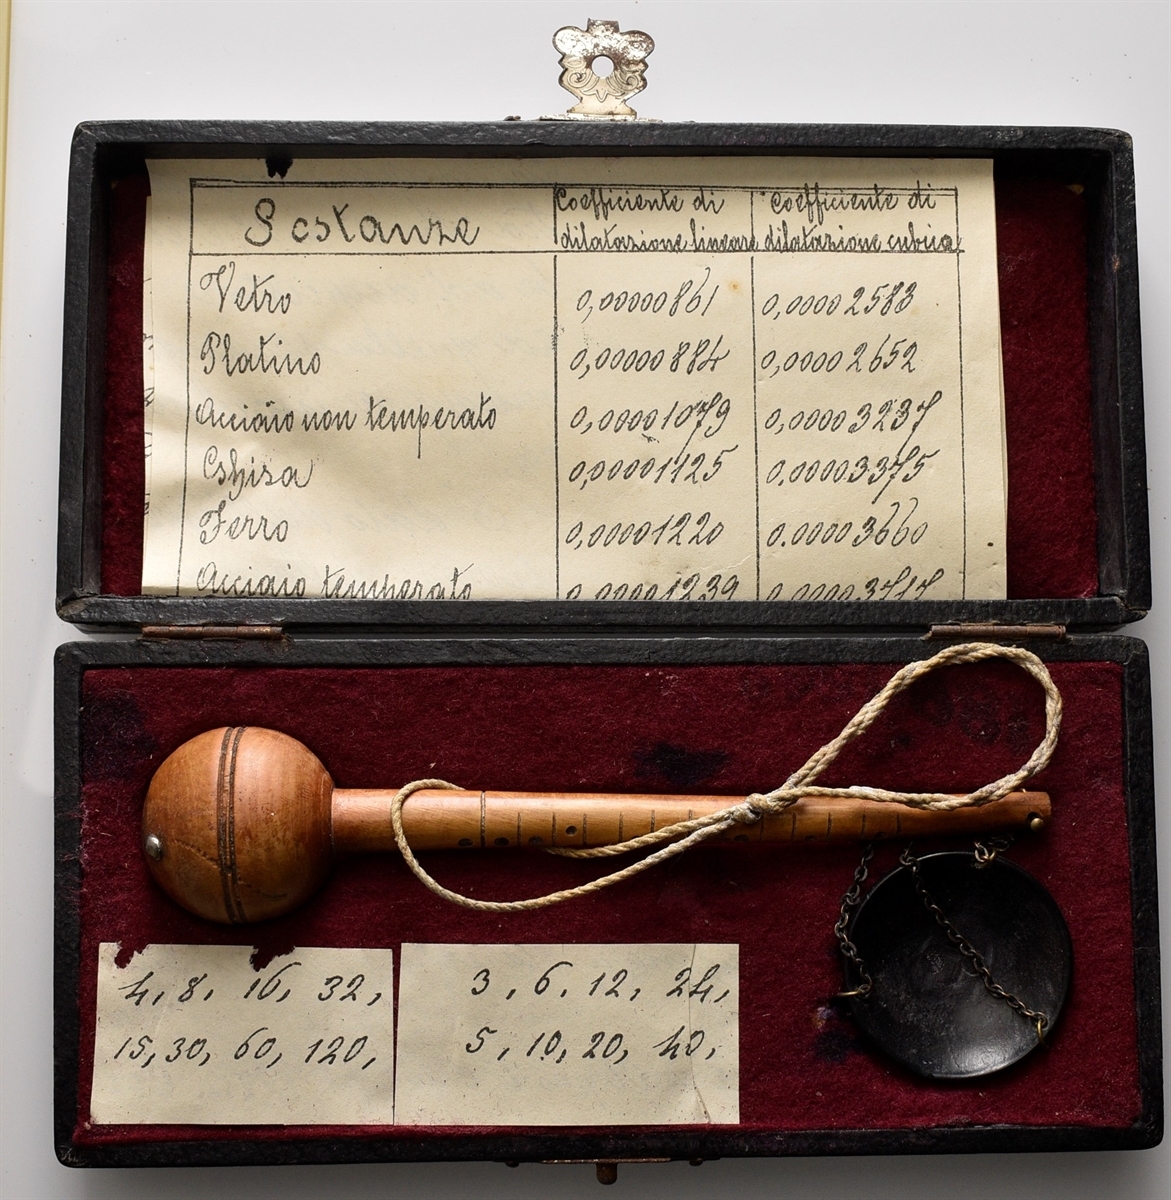 Sostanze
Coefficiente di
dilatazione lineare
Coefficiente di
dilatazione cubica
Vetro 0,00000861 0,00002583
Platino 0,00000884 0,00002652
Acciaio non temperato 0,00001079 0,00003237
Ghisa 0,00001125 0.00003375
Ferro 0,00001220 0.00003660
Acciaio temperato 0,00001239 0,00003717
4, 8, 16, 32,
15, 30, 60, 120,
3, 6, 12, 24,
5, 10, 20, 40,